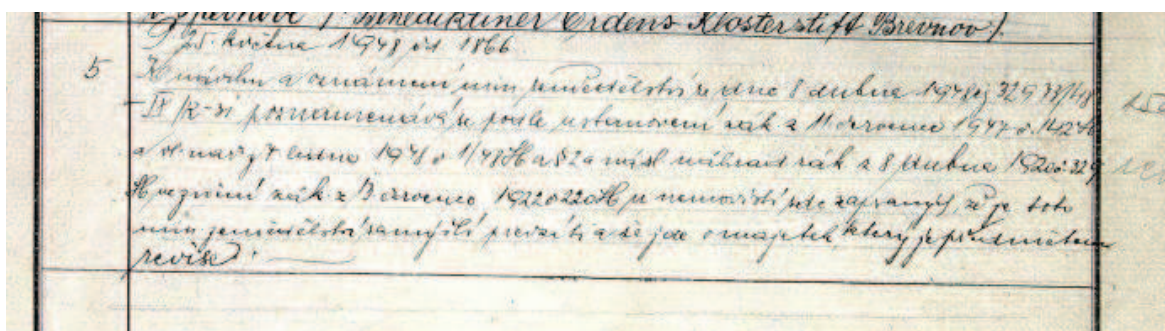 v Břevnově /: Benediktiner Ordens Klosterstift Brevnov :/.
25. května 1948 čd 1866
5 K návrhu a oznámení min. zemědělství ze dne 8 dubna 1948 čj 32933/48
-IX/R-31 poznamenává se podle ustanovení zák z 11 července 1947 č. 142 Sb
a vl. nař. z 7 ledna 1948 č 1/48 Sb a § 2 a násl náhrad. zák z 8 dubna 1920 č 329
Sb ve znění zák. z 13 července 1922 č 220 Sb u nemovitostí zde zapsaných, že je toto
min zemědělství zamýšlí převzíti a že jde o majetek, který je předmětem
revise.